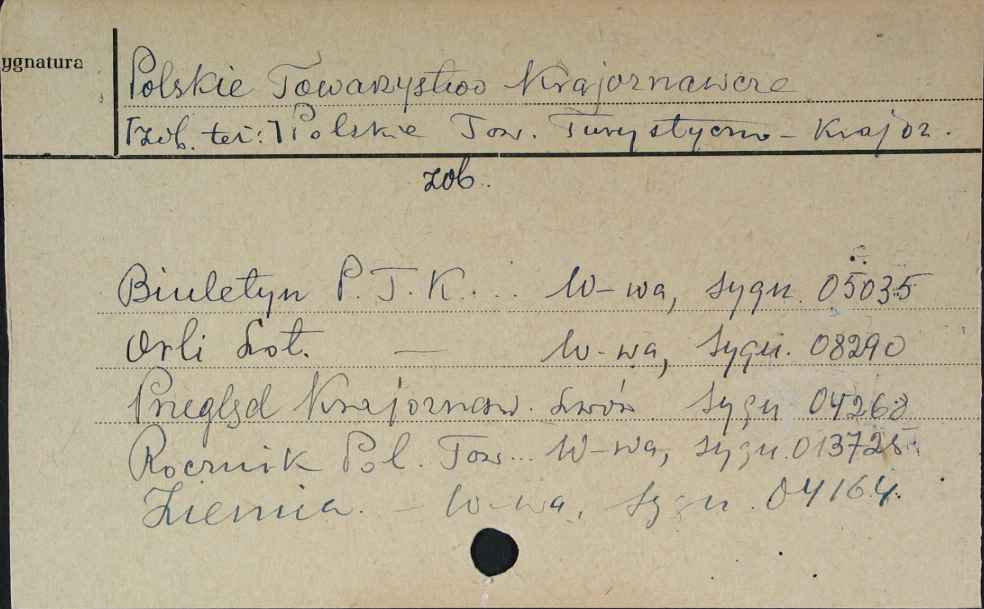 ygnatura
Polskie Towarzystwo Krajoznawcze
[zob. też:] Polskie Tow. Turystyczno-Krajoz.
zob.
Biuletyn P.T.K... W-wa, sygn. 05035
Orli Lot. — W-wa, sygn. 08290
Przegląd Krajoznaw. Lwów sygn 04268
Rocznik Pol. Tow... W-wa, sygn. 013725
Ziemia. — W-wa, sygn. 04164.